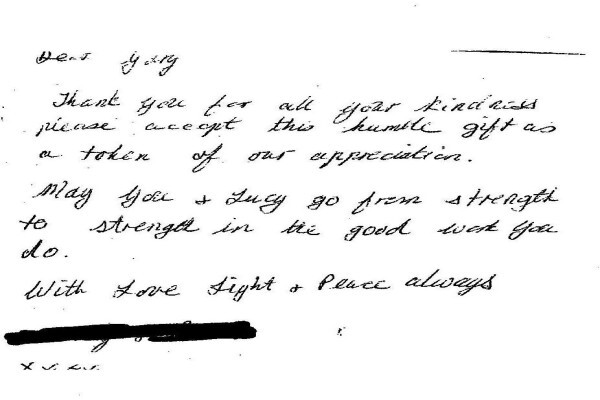 Dear Gary
Thank you for all your kindness
please accept this humble gift as
a token of our appreciation.
May you & Lucy go from strength
to strength in the good work you
do.
With Love Light & Peace always